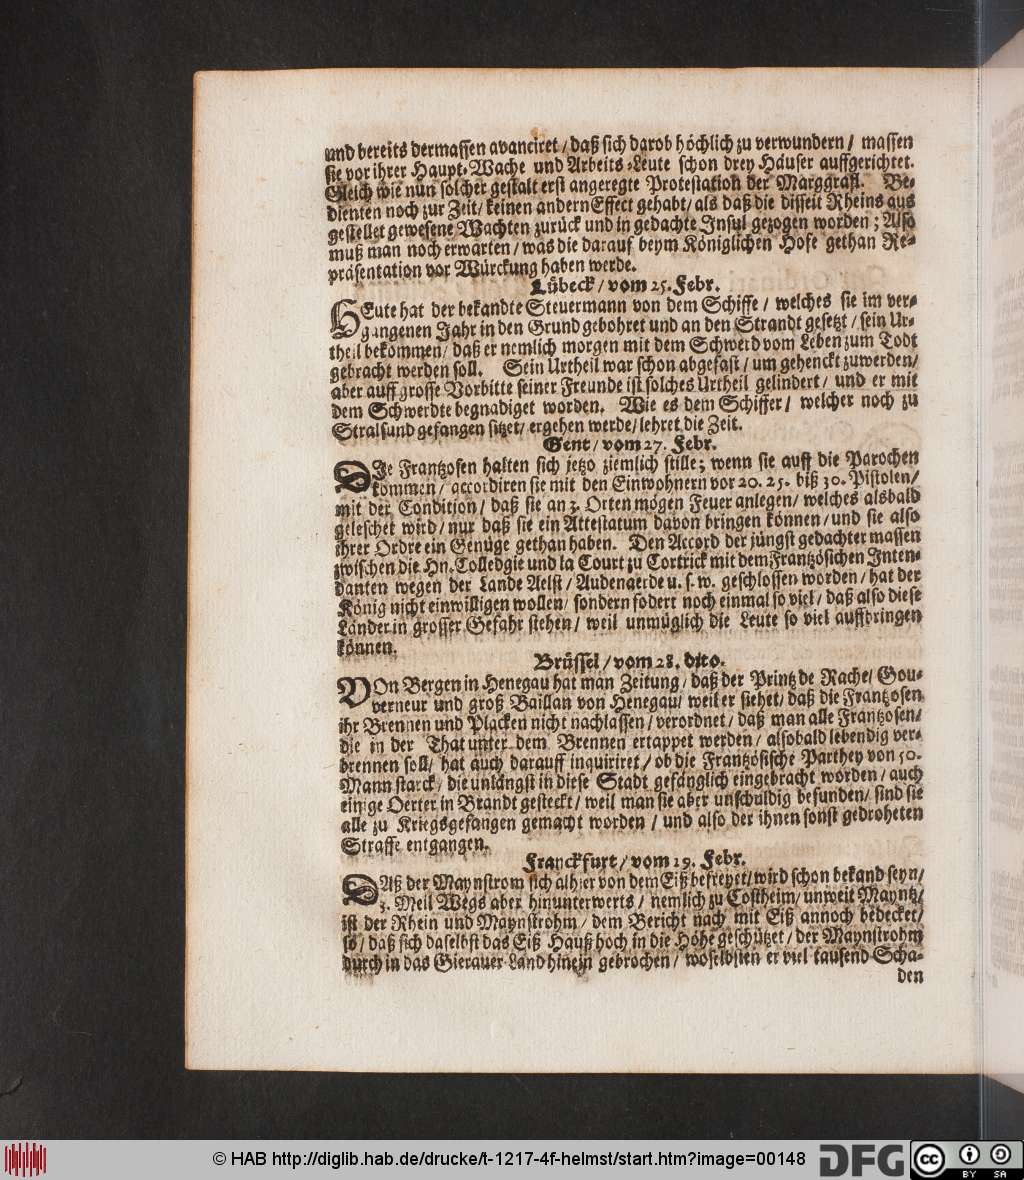 und bereits dermassen avanciret / daß sich darob höchlich zu verwundern / massen
sie vor ihrer Haupt-Wache und Arbeits-Leute schon drey Häuser auffgerichtet.
Gleich wie nun solcher gestalt erst angeregte Protestation der Marggräfl. Be-
dienten noch zur Zeit / keinen andern Effect gehabt / als daß die disseit Rheins aus
gestellet gewesene Wachten zurück und in gedachte Insul gezogen worden ; Also
muß man noch erwarten / was die darauf beym Königlichen Hofe gethan Re-
präsentation vor Würckung haben werde.
Lübeck / vom 25. Febr.
HEute hat der bekandte Steuermann von dem Schiffe / welches sie im ver-
gangenen Jahr in den Grund gebohret und an den Strandt gesetzt / sein Ur-
theil bekommen / daß er nemlich morgen mit dem Schwerd vom Leben zum Todt
gebracht werden soll. Sein Urtheil war schon abgefast / um gehenckt zuwerden /
aber auff grosse Vorbitte seiner Freunde ist solches Urtheil gelindert / und er mit
dem Schwerdte begnadiget worden. Wie es dem Schiffer / welcher noch zu
Stralsund gefangen sitzet / ergehen werde / lehret die Zeit.
Gent / vom 27. Febr.
DIe Frantzosen halten sich jetzo ziemlich stille ; wenn sie auff die Parochen
kommen / accordiren sie mit den Einwohnern vor 20. 25. biß 30. Pistolen /
mit der Condition / daß sie an 3. Orten mögen Feuer anlegen / welches alsbald
geleschet wird / nur daß sie ein Attestatum davon bringen können / und sie also
ihrer Ordre ein Genüge gethan haben. Den Accord der jüngst gedachter massen
zwischen die Hn. Colledgie und la Court zu Cortrick mit dem Frantzösichen Inten-
danten wegen der Lande Aelst / Audenaerde u. s. w. geschlossen worden / hat der
König nicht einwilligen wollen / sondern fodert noch einmal so viel / daß also diese
Länder in grosser Gefahr stehen / weil unmüglich die Leute so viel auffbringen
können.
Brüssel / vom 28. dito.
VOn Bergen in Henegau hat man Zeitung / daß der Printz de Rache / Gou-
verneur und groß Baillan von Henegau / weil er siehet / daß die Frantzosen
ihr Brennen und Placken nicht nachlassen / verordnet / daß man alle Frantzosen /
die in der That unter dem Brennen ertappet werden / alsobald lebendig ver-
brennen soll / hat auch darauff inquiriret / ob die Frantzösische Parthey von 50.
Mann starck / die unlängst in diese Stadt gefänglich eingebracht worden / auch
einige Oerter in Brandt gesteckt / weil man sie aber unschuldig befunden / sind sie
alle zu Kriegsgefangen gemacht worden / und also der ihnen sonst gedroheten
Straffe entgangen.
Franckfurt / vom 29. Febr.
DAß der Maynstrom sich alhier von dem Eiß befreyet / wird schon bekand seyn /
3. Meil Wegs aber hinunterwerts / nemlich zu Costheim / unweit Mayntz /
ist der Rhein und Maynstrohm / dem Bericht nach mit Eiß annoch bedecket /
so / daß sich daselbst das Eiß Hauß hoch in die Höhe geschützet / der Maynstrohm
durch in das Gierauer Land hinein gebrochen / woselbsten er viel tausend Scha-
den
© HAB http://diglib.hab.de/drucke/t-1217-4f-helmst/start.htm?image=00148
DFG
cc BY SA